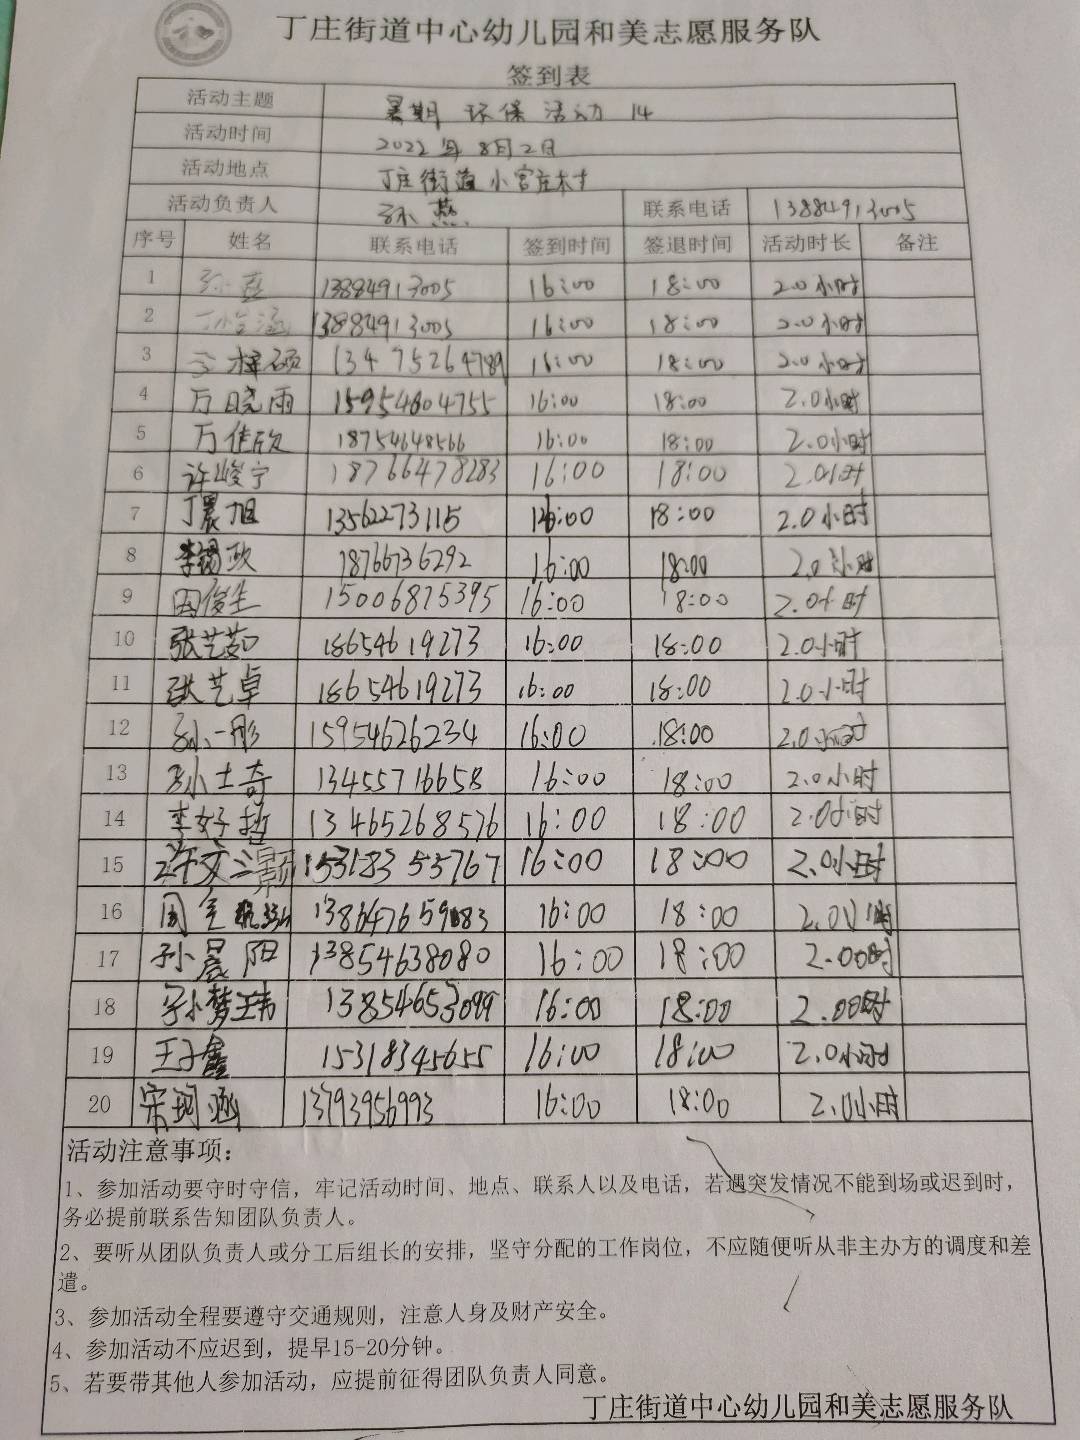 丁庄街道中心幼儿园和美志愿服务队
签到表
活动主题 暑期 环保 活动 14
活动时间 2022年8月2日
活动地点 丁庄街道小宫庄村
活动负责人 孙燕 联系电话 13884913005
序号 姓名 联系电话 签到时间 签退时间 活动时长 备注
1 孙燕 13884913005 16:00 18:00 2.0小时
2 13884913005 16:00 18:00 2.0小时
3 13475264789 16:00 18:00 2.0小时
4 万晓雨 15954604755 16:00 18:00 2.0小时
5 万佳欣 18754648566 16:00 18:00 2.0小时
6 许峻宁 18766478283 16:00 18:00 2.0小时
7 丁晨旭 13562273115 16:00 18:00 2.0小时
8 18766736292 16:00 18:00 2.0小时
9 周俊生 15006875395 16:00 18:00 2.0小时
10 张艺茹 18654619273 16:00 18:00 2.0小时
11 张艺卓 18654619273 16:00 18:00 2.0小时
12 孙一彤 15954626234 16:00 18:00 2.0小时
13 孙士奇 13455716658 16:00 18:00 2.0小时
14 李好哲 13465268576 16:00 18:00 2.0小时
15 许文灏 15318355767 16:00 18:00 2.0小时
16 16:00 18:00 2.0小时
17 孙晨阳 13854638080 16:00 18:00 2.0时
18 孙梦玮 13854653099 16:00 18:00 2.0时
19 王子鑫 15318345655 16:00 18:00 2.0小时
20 宋珂涵 13793956993 16:00 18:00 2.0小时
活动注意事项：
1、参加活动要守时守信，牢记活动时间、地点、联系人以及电话，若遇突发情况不能到场或迟到时，
务必提前联系告知团队负责人。
2、要听从团队负责人或分工后组长的安排，坚守分配的工作岗位，不应随便听从非主办方的调度和差
遣。
3、参加活动全程要遵守交通规则，注意人身及财产安全。
4、参加活动不应迟到，提早15-20分钟。
5、若要带其他人参加活动，应提前征得团队负责人同意。
丁庄街道中心幼儿园和美志愿服务队